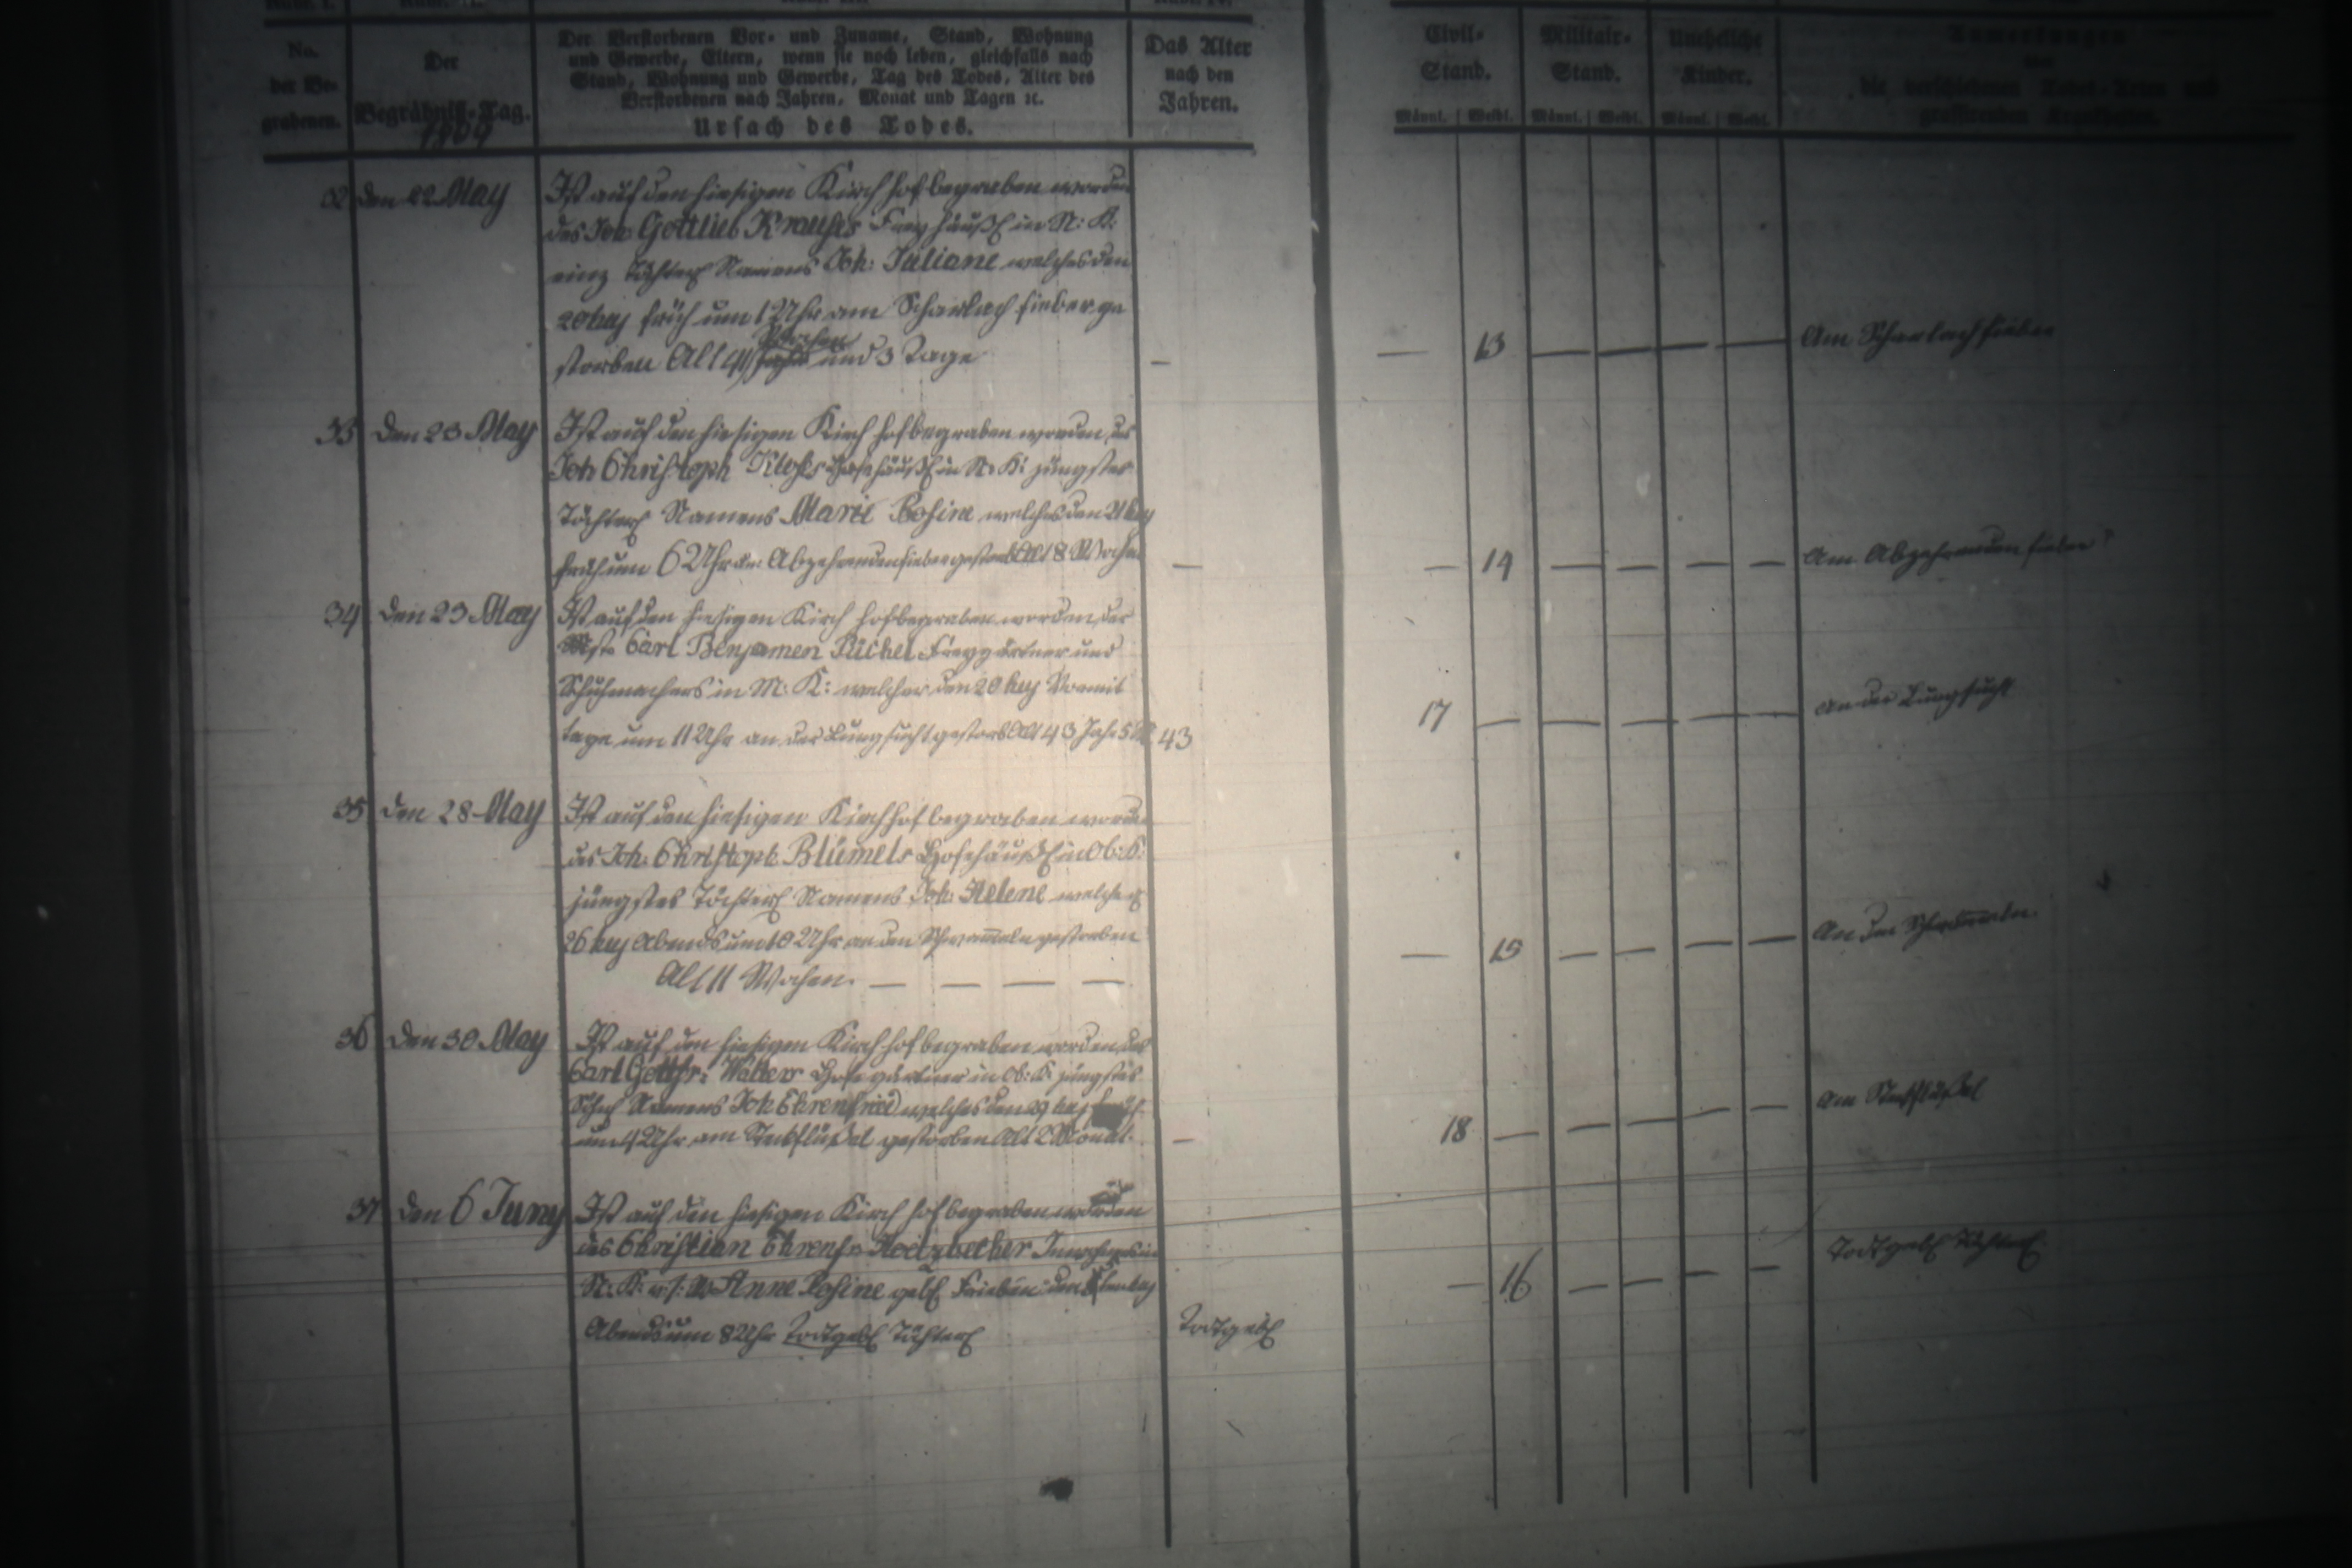 No.
der Be-
grabenen.
Der
Begräbniß-Tag.
1809
Der Verstorbenen Vor- und Zuname, Stand, Wohnung
und Gewerbe, Eltern, wenn sie noch leben, gleichfalls nach
Stand, Wohnung und Gewerbe, Tag des Todes, Alter des
Verstorbenen nach Jahren, Monat und Tagen ꝛc.
Ursach des Todes.
Das Alter
nach den
Jahren.
Civil-
Stand.
Männl. Weibl.
Militair-
Stand.
Männl. Weibl.
Uneheliche
Kinder.
Männl. Weibl.
Anmerkungen
die verschiedenen Todes-Arten und
grassirenden Krankheiten.
32 den 22 May
Ist auf den hiesigen Kirchhof begraben worden
des Joh Gottlieb Krauses Freyhäußl in N: K:
einz Töchterl Namens Joh: Juliane welches den
20 huj früh um 1 Uhr am Scharlach fieber ge
storben Alt 41 Wochen und 3 Tage
— — 13 — — — — Am Scharlachfieber
33 den 23 May
Ist auf den hiesigen Kirchhof begraben worden des
Joh Christoph Kloses Hofehäußl in N: K: jüngstes
Töchterl Namens Marie Rosine welches den 21 huj
früh um 6 Uhr am Abzehrenden fieber gestorb Alt 8 Wochen
— — 14 — — — — Am Abzehrenden fieber
34 den 23 May
Ist auf den hiesigen Kirchhof begraben worden der
Mstr Carl Benjamen Freygärtner und
Schuhmachers in M: K: welcher den 20 huj Vormit
tags um 11 Uhr an der Lungsucht gestorb Alt 43 Jahr 5
43 17 — — — — — An der Lungsucht
35 den 28 May
Ist auf den hiesigen Kirchhof begraben worden
des Joh: Christoph Blümels Hofehäußl in Ob: K:
jüngstes Töchterl Namens Joh: Helene welches
26 huj Abends um 10 Uhr an den Schwämmeln gestorben
Alt 11 Wochen. — — — —
— 15 — — — — An den Schwämmeln.
36 den 30 May
Ist auf den hiesigen Kirchhof begraben worden des
Carl Gottfr: Walter Hofegärtner in Ob: K: jüngstes
Söhnl Namens Joh Ehrenfried welches den 29 huj früh
um 4 Uhr am Steckflüßel gestorben Alt 2 Monat.
— 18 — — — — — Am Steckflüßel
37 den 6 Juny
Ist auf den hiesigen Kirchhof begraben worden
des Christian Ehrenfr Inwohners in
N: K: Anne Rosine gebl den huj
Abends um 8 Uhr Todtgebl Töchterl
Todtgebl — 16 — — — — Todtgebl Töchterl